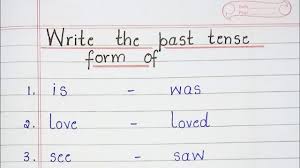 Write the past tense
form of
1. is - was
2. love - loved
3. see - saw